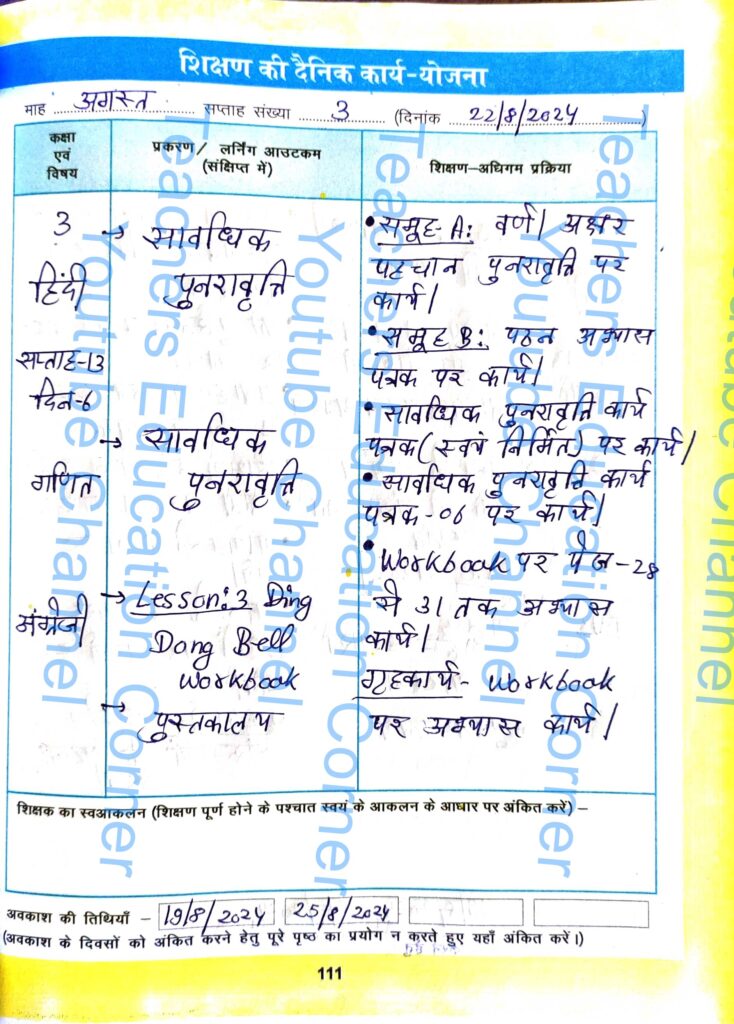 शिक्षण की दैनिक कार्य-योजना
माह अगस्त सप्ताह संख्या 3 (दिनांक 22/8/2024)
कक्षा
एवं
विषय
प्रकरण/ लर्निंग आउटकम
(संक्षिप्त में)
शिक्षण-अधिगम प्रक्रिया
3
हिंदी
सप्ताह-13
दिन-6
गणित
अंग्रेजी
→ सावधिक
पुनरावृत्ति
→ सावधिक
पुनरावृत्ति
→ Lesson:3 Ding
Dong Bell
Workbook
→ पुस्तकालय
• समूह-A: वर्ण/अक्षर
पहचान पुनरावृत्ति पर
कार्य।
• समूह B: पठन अभ्यास
पत्रक पर कार्य।
• सावधिक पुनरावृत्ति कार्य
पत्रक (स्वयं निर्मित) पर कार्य।
• सावधिक पुनरावृत्ति कार्य
पत्रक-06 पर कार्य।
• Workbook पर पेज-28
से 31 तक अभ्यास
कार्य।
गृहकार्य- Workbook
पर अभ्यास कार्य।
शिक्षक का स्वआकलन (शिक्षण पूर्ण होने के पश्चात स्वयं के आकलन के आधार पर अंकित करें) –
अवकाश की तिथियाँ – 19/8/2024 25/8/2024
(अवकाश के दिवसों को अंकित करने हेतु पूरे पृष्ठ का प्रयोग न करते हुए यहाँ अंकित करें।)
111
Teachers Education Corner
Youtube Channel
Teachers Education Corner
Youtube Channel
Teachers Education Corner
Youtube Channel